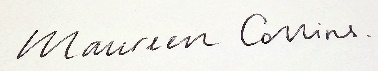 Maureen Collins.